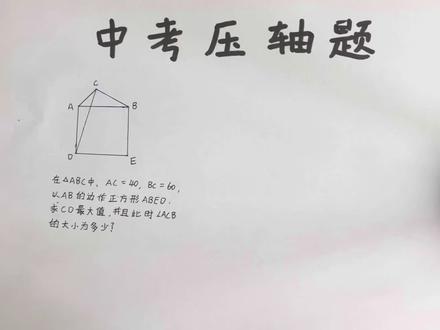 中考压轴题
C
A
B
D
E
在△ABC中, AC=40, BC=60,
以AB的边作正方形ABED.
求CD最大值,并且此时∠ACB
的大小为多少?